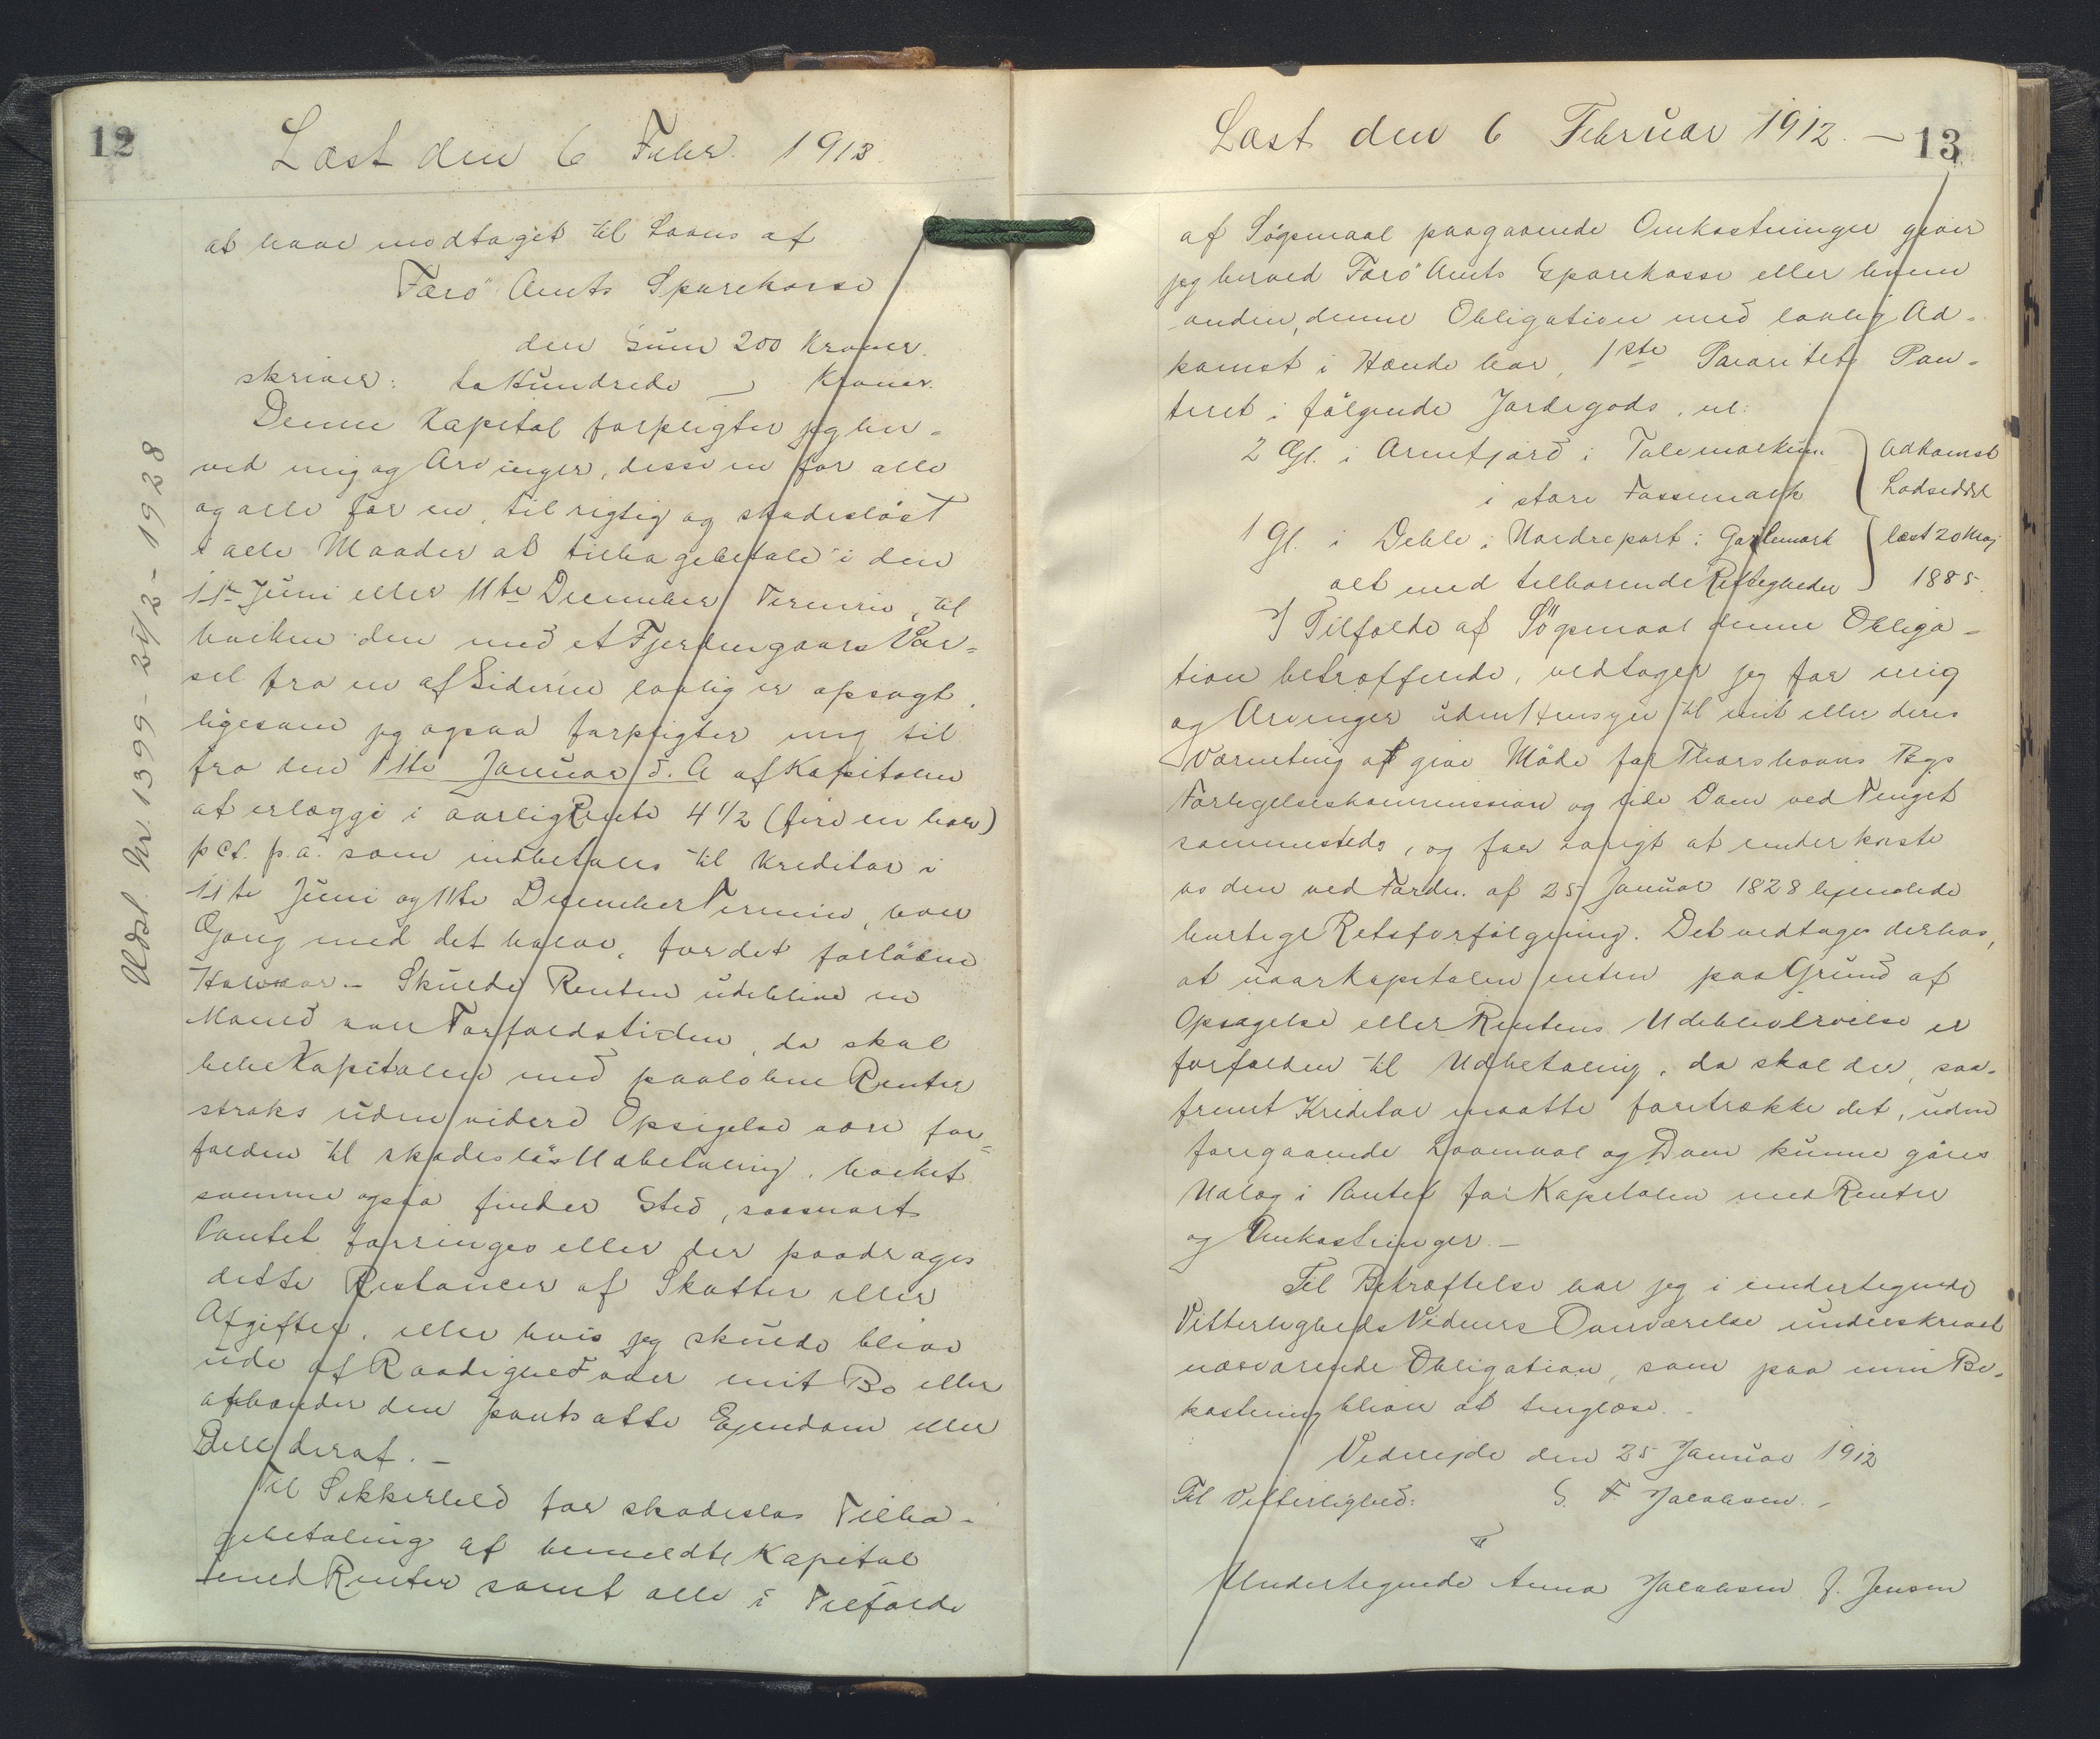 12
Læst den 6 Febr. 1913.
at have modtaget til Laans af
Færö Amts Sparekasse
den Sum 200 Kroner.
skriver: to Hundrede Kroner.
Denne Kapital forpligter jeg her=
ved mig og Arvinger, disse en for alle
og alle for en, til rigtig og skadeslöst
i alle Maader at tilbagebetale i den
11te Juni eller 11te December Termin, til
hvilken den med et Fjerdingaars Var=
sel fra en af Siderne lovlig er opsagt,
ligesom jeg ogsaa forpligter mig til
fra den 11te Januar d. A af Kapitalen
at erlægge i aarlig Rente 4 1/2 (fire en halv)
pCt. p.a. som indbetales til Kreditor i
11te Juni og 11te December Termin, hver
Gang med det halve, for det forløbne
Halvaar. – Skulde Renten udeblive en
Maaned over Forfaldstiden, da skal
hele Kapitalen med paalobne Renter
straks uden videre Opsigelse være for=
falden til skadeslös Udbetaling, hvilket
samme ogsaa finder Sted, saasnart
Pantet forringes eller der paadrages
dette Restancer af Skatter eller
Afgifter, eller hvis jeg skulde blive
ude af Raadighed over mit Bo eller
afhænder den pantsatte Ejendom eller
Dele deraf. –
Til Sikkerhed for skadeslos Tilba=
gebetaling af bemeldte Kapital
med Renter samt alle i Tilfælde
Udsl. Nr. 1399 - 25/2 - 1928
Læst den 6 Februar 1912. – 13
af Sögsmaal paagaaende Omkostninger giver
jeg herved Færö Amts Sparekasse eller hvem
anden, denne Obligation med lovlig Ad=
komst i Hænde har, 1ste Prioritets Pan=
teret i fölgende Jordegods, nl:
2 Gl. i Arnefjord i
i store Fossemark
Adkomst
Lodseddel
1 Gl. i Deble i Nordrepart i
læst 20 Maj
alt med tilhorende Rettigheder 1885.
I Tilfælde af Sögsmaal denne Obliga=
tion betræffende, vedtager jeg for mig
og Arvinger uden Hensyn til mit eller deres
Værneting at give Möde for Thorshavns Bys
Forligelseskommission og lide Dom ved Tinget
sammesteds, og for övrigt at underkaste
os den ved Fordn. af 25 Januar 1828 hjemlede
hurtige Retsforfölgning. Det vedtages derhos,
at naar Kapitalen enten paa Grund af
Opsigelse eller Rentens Udeblivelse er
forfalden til Udbetaling, da skal der, saa=
fremt Kreditor maatte foretrække det, uden
foregaaende Lovmaal og Dom kunne göres
Udlæg i Pantet for Kapitalen med Renter
og Omkostninger. –
Til Bekræftelse har jeg i undertegnede
Vitterligheds Vidners Overværelse underskrevet
nærværende Obligation, som paa min Be=
kostning bliver at tinglæse.
Videreide den 25 Januar 1912
Til Vitterlighed: S. F. Jacobsen.
Undertegnede Anna Jacobsen J. Jensen